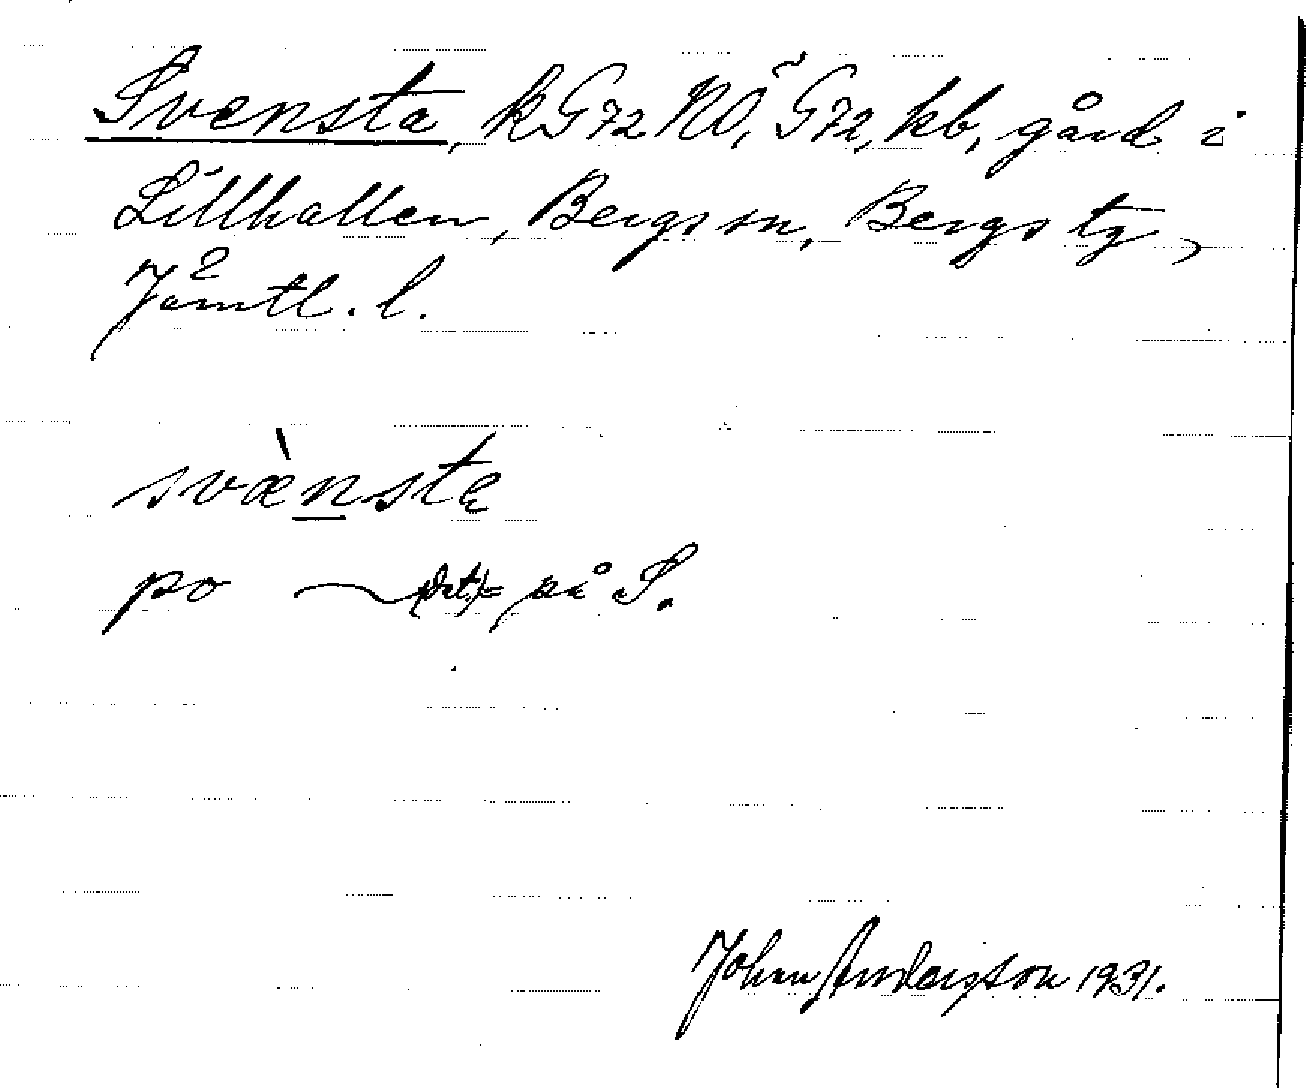 Svensta, kG72NO, G72, kb, gård i
Lillhallen, Bergs sn, Bergs tg,
Jämtl. l.
svæ̀nsta
po ~ (dat.) = på S.
Johan Andersson 1931.